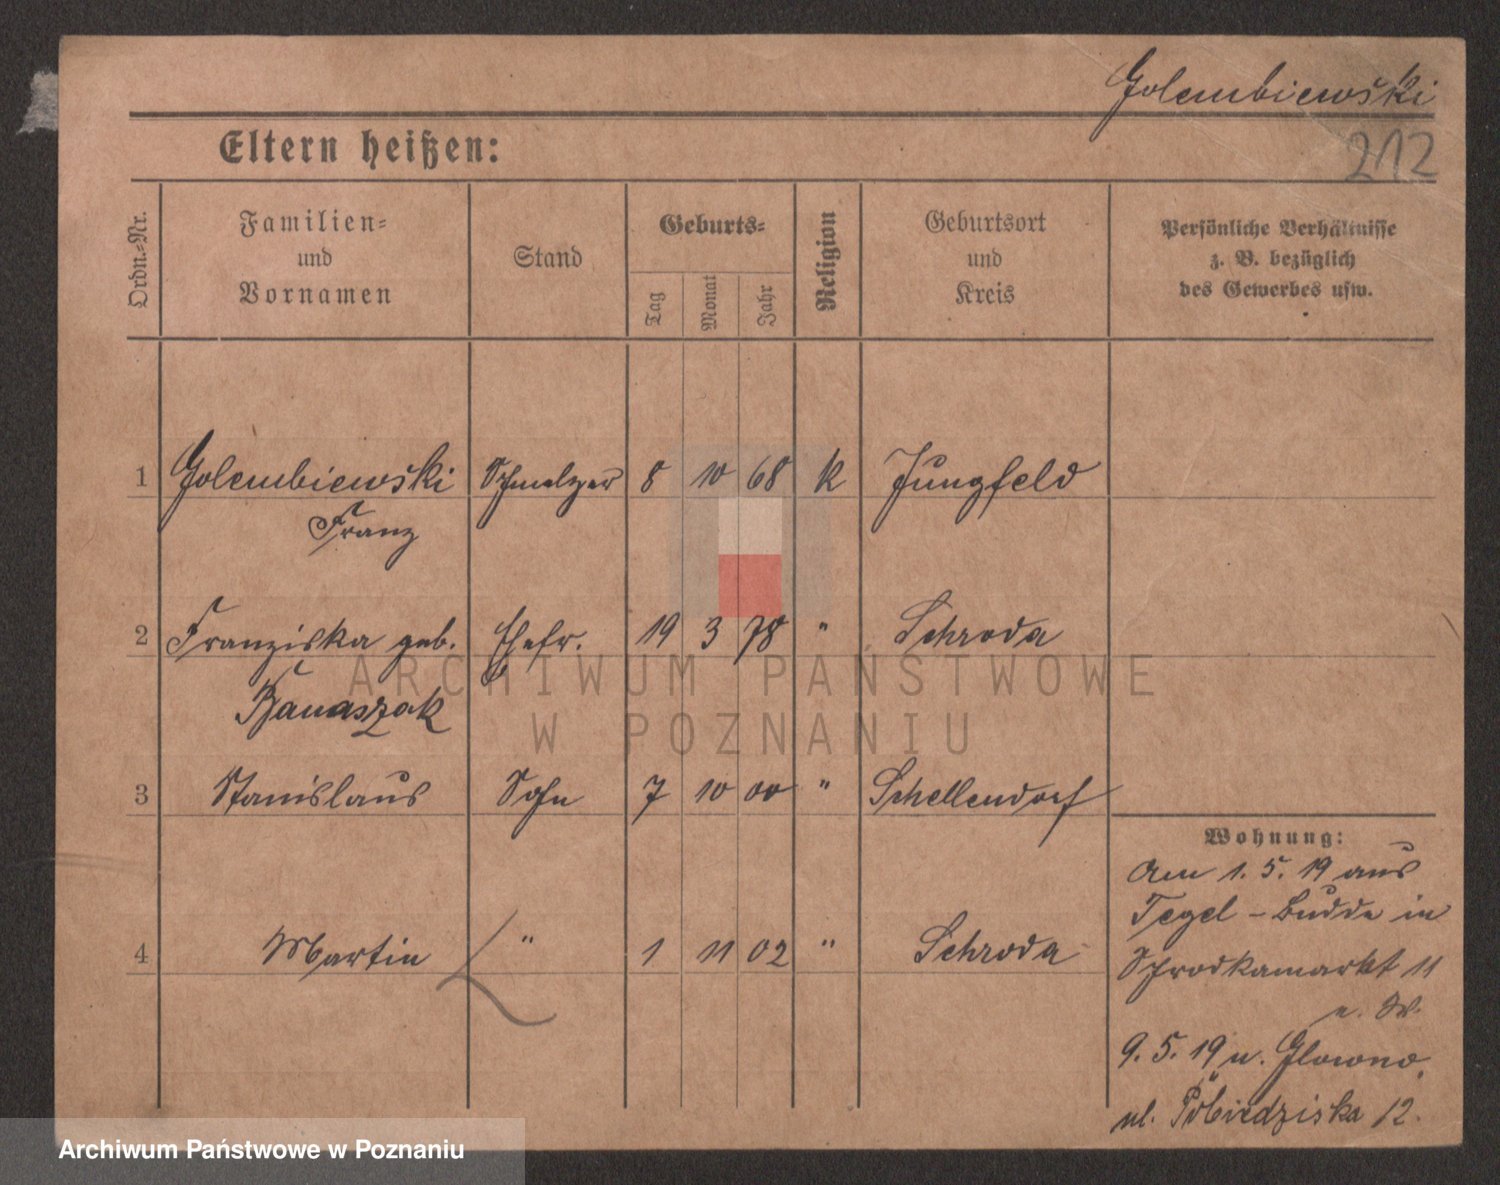 Golembiewski
212
Eltern heißen:
Ordn.-Nr.
Familien-
und
Vornamen
Stand
Geburts-
Tag
Monat
Jahr
Religion
Geburtsort
und
Kreis
Persönliche Verhältnisse
z. B. bezüglich
des Gewerbes usw.
1 Golembiewski Schmelzer 8 10 68 K Jungfeld
Franz
2 Franziska geb. Ehefr. 19 3 78 " Schroda
Banaszak
3 Stanislaus Sohn 7 10 00 " Schellendorf
4 Martin " 1 11 02 " Schroda
Wohnung:
Am 1. 5. 19 aus
Tegel - in
Schrodkamarkt 11
9. 5. 19 n. Glowno,
ul. Pobiedziska 12.
ARCHIWUM PAŃSTWOWE
W POZNANIU
Archiwum Państwowe w Poznaniu